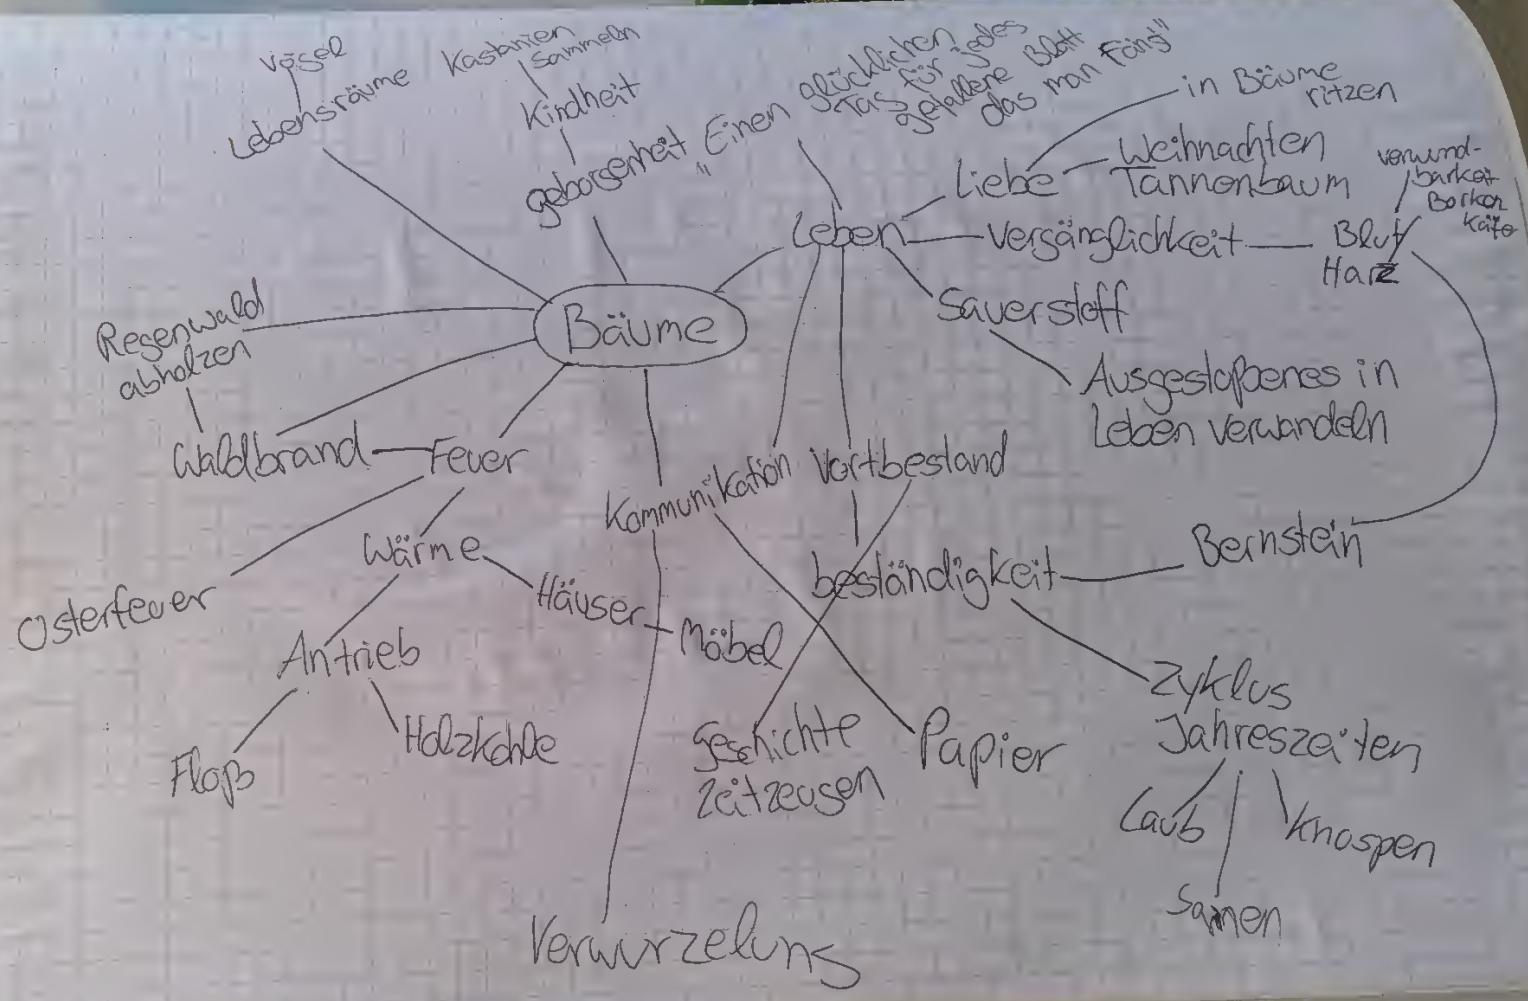 Vögel
Lebensräume
Kastanien
sammeln
Kindheit
geborgenheit
"Einen glücklichen
Tag für jedes
gefallene Blatt
das man fängt"
in Bäume
ritzen
Liebe
Weihnachten
Tannenbaum
verwund-
barkeit
Borken
Käfer
Leben
Vergänglichkeit
Blut
Harz
Sauerstoff
Ausgestoßenes in
Leben verwandeln
Bäume
Regenwald
abholzen
Waldbrand
Feuer
Kommunikation
Vortbestand
Wärme
Osterfeuer
Häuser
Möbel
beständigkeit
Bernstein
Antrieb
Floß
Holzkohle
Geschichte
Zeitzeugen
Papier
Zyklus
Jahreszeiten
Laub
Knospen
Samen
Verwurzelung